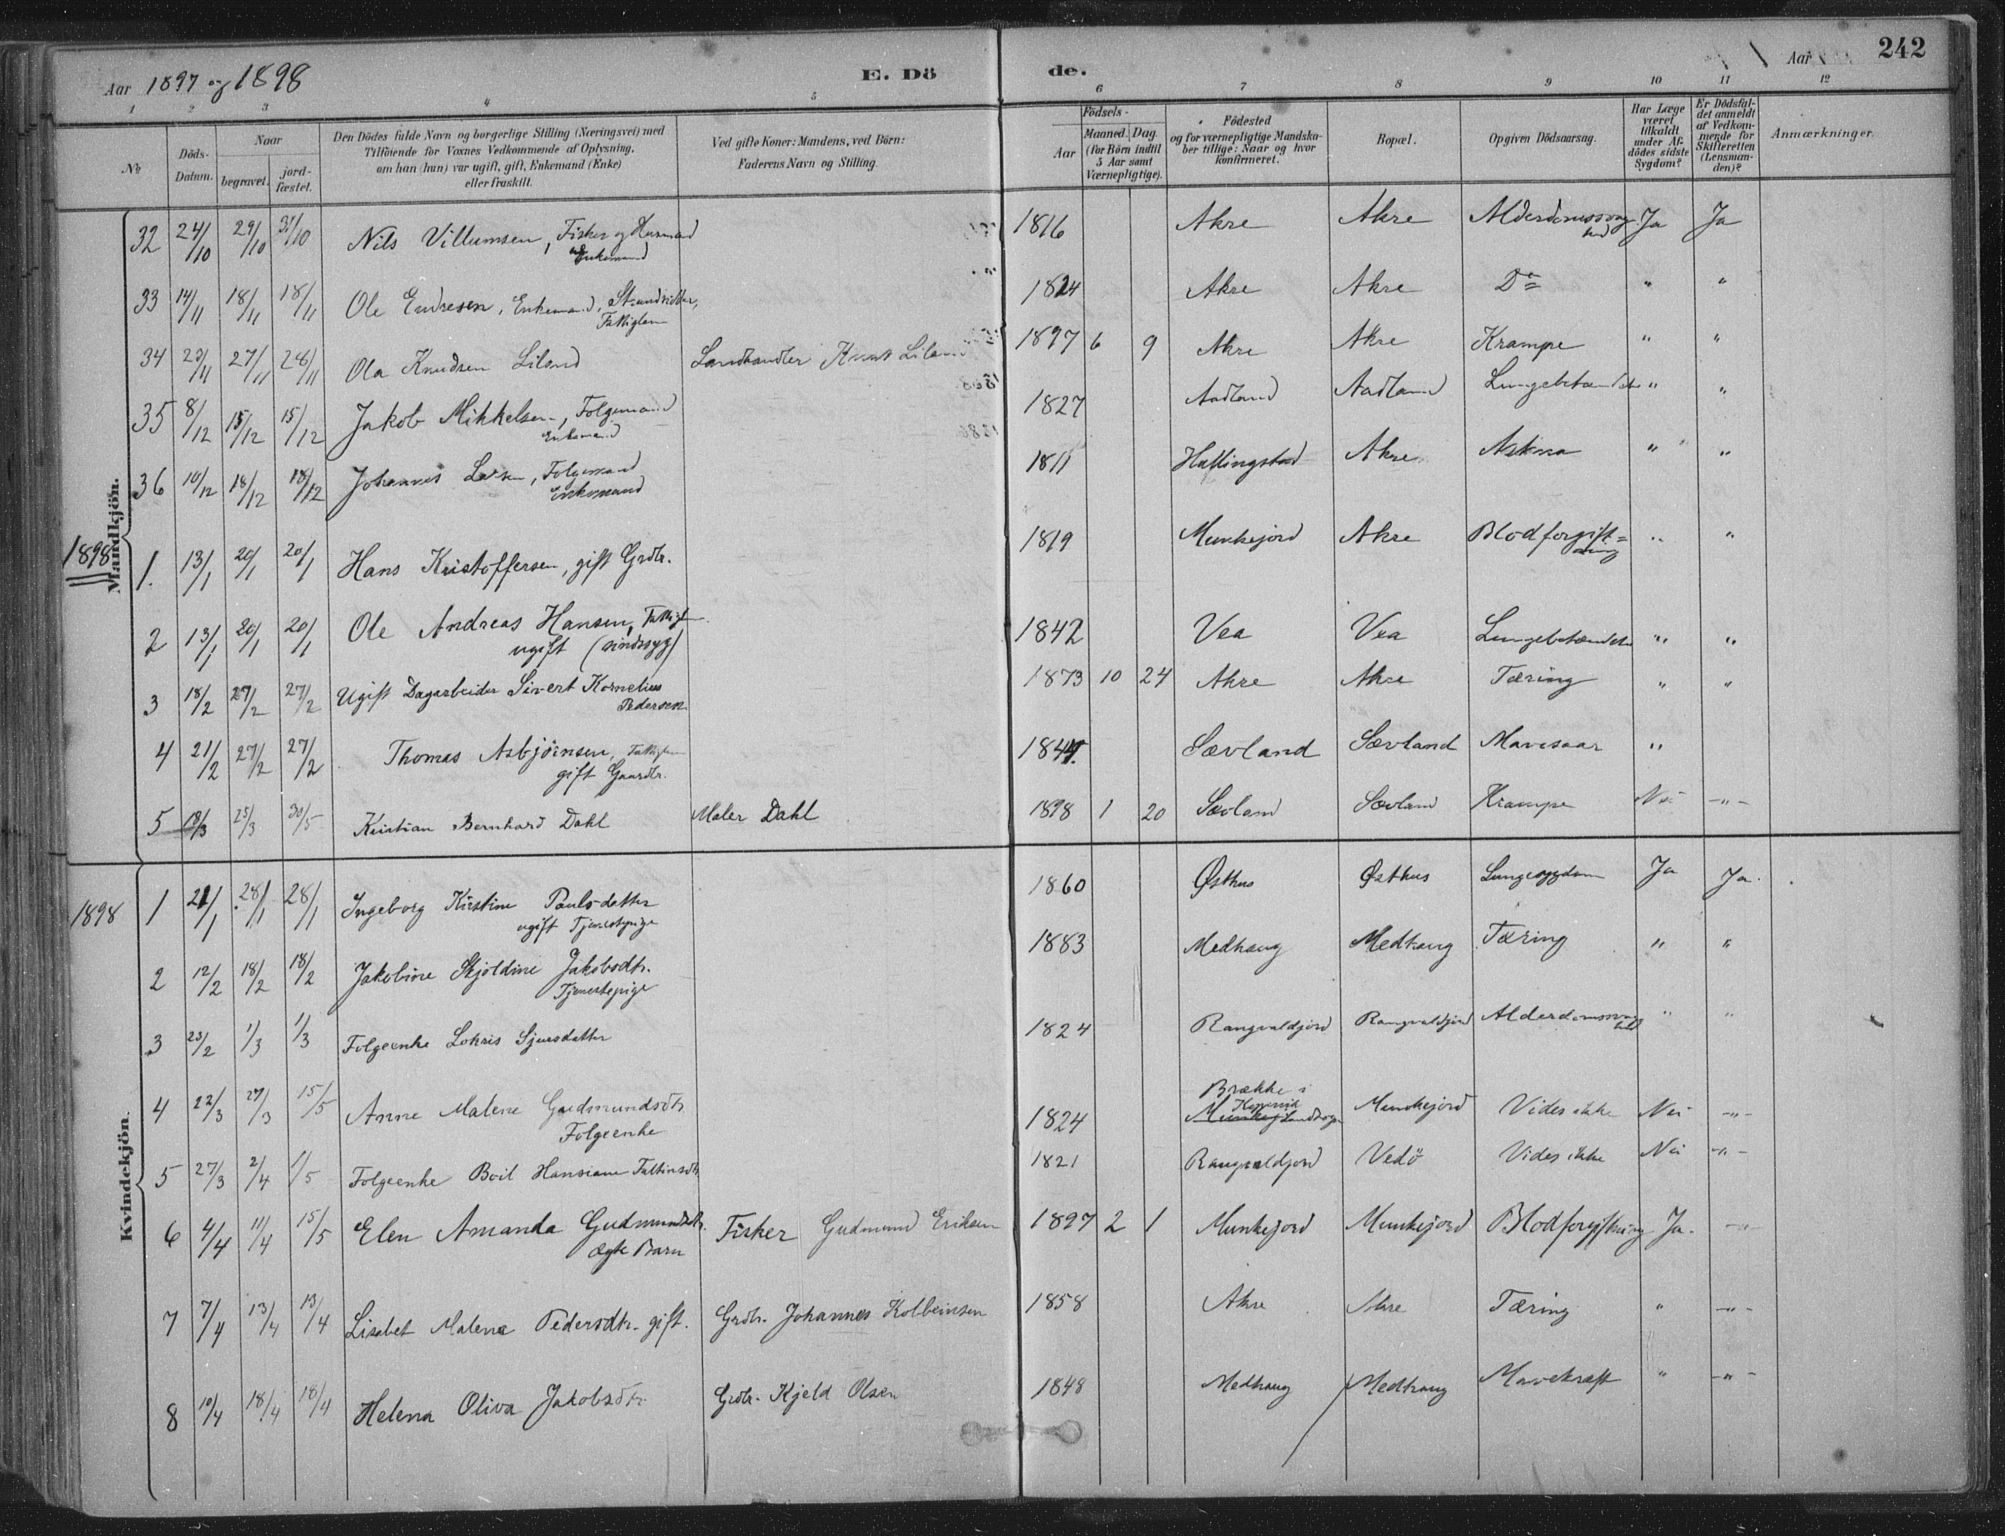 Aar 1897 og 1898
E. Dö
de.
Aar
242
1 2 3 4 5 6 7 8 9 10 11 12
№
Döds-Datum.
Naar
begravet.
jord-fæstet.
Den Dödes fulde Navn og borgerlige Stilling (Næringsvei) med
Tilföiende for Voxnes Vedkommende af Oplysning,
om han (hun) var ugift, gift, Enkemand (Enke)
eller fraskilt.
Ved gifte Koner: Mandens, ved Börn:
Faderens Navn og Stilling.
Födsels-
Aar
Maaned. Dag.
(for Börn indtil
5 Aar samt
Værnepligtige).
Födested
og for værnepligtige Mandska-
ber tillige: Naar og hvor
konfirmeret.
Bopæl.
Opgiven Dödsaarsag.
Har Læge
været
tilkaldt
under Af-
dödes sidste
Sygdom?
Er Dödsfal-
det anmeldt
af Vedkom-
mende for
Skifteretten
(Lensman-
den)?
Anmærkninger.
Mandkjön.
32 24/10 29/10 31/10 Nils Villumsen, Fisker og Husmand Enkemand 1816 Akre Akre Alderdomssvaghed Ja Ja
33 14/11 18/11 18/11 Ole Endresen, Enkemand, Strandsidder, Fattiglem 1824 Akre Akre Do " "
34 23/11 27/11 28/11 Ola Knudsen Liland Landhandler Knut Liland 1897 6 9 Akre Akre Krampe " "
35 8/12 15/12 15/12 Jakob Mikkelsen, Folgemand Enkemand 1827 Aadland Aadland Lungebetændelse " "
36 10/12 18/12 18/12 Johannes Larsen, Folgemand Enkemand 1811 Hallingstad Akre Astma " "
1898
1. 13/1 20/1 20/1 Hans Kristoffersen, gift Grdbr. 1819 Munkejord Akre Blodforgiftning " "
2 13/1 20/1 20/1 Ole Andreas Hansen, Fattigl. ugift (sindssyg) 1842 Vea Vea Lungebetændelse " "
3 18/2 27/2 27/2 Ugift Dagarbeider Sivert Kornelius Pedersen 1873 10 24 Akre Akre Tæring " "
4 21/2 27/2 27/2 Thomas Asbjörnsen, Fattiglem gift Gaardbr. 1844 Sævland Sævland Mavesaar "
5 18/3 25/3 30/5 Kristian Bernhard Dahl Maler Dahl 1898 1 20 Sævland Sævland Krampe Nei - " -
Kvindekjön.
1898
1 21/1 28/1 28/1 Ingeborg Kirstine Paulsdatter ugift Tjenestepige 1860 Østhus Østhus Lungesygdom Ja Ja.
2 12/2 18/2 18/2 Jakobine Skjoldine Jakobsdtr. Tjenestepige 1883 Medhaug Medhaug Tæring " "
3 23/2 1/3 1/3 Folgeenke Lokris Sjursdatter 1824 Rangvaldjord Rangvaldjord Alderdomssvaghed " "
4 22/3 27/3 15/5 Anne Malene Gudmundsdtr. Folgeenke 1824 Brække i Kopervik Landsogn Munkejord Vides ikke Nei - " -
5 27/3 2/4 1/5 Folgeenke Boil Hansiane 1821 Rangvaldjord Vedö Vides ikke Nei - " -
6 4/4 11/4 15/5 Elen Amanda Gudmundsdtr. ægte Barn Fisker Gudmund Eriksen 1897 2 1 Munkejord Munkejord Blodforgiftning Ja. - " -
7 7/4 13/4 13/4 Lisabet Malene Pedersdtr. gift. Grdbr. Johannes Kolbeinsen 1858 Akre Akre Tæring " - " -
8 10/4 18/4 18/4 Helena Oliva Jakobsdtr Grdbr. Kjeld Olsen 1848 Medhaug Medhaug Mavekræft " - " -